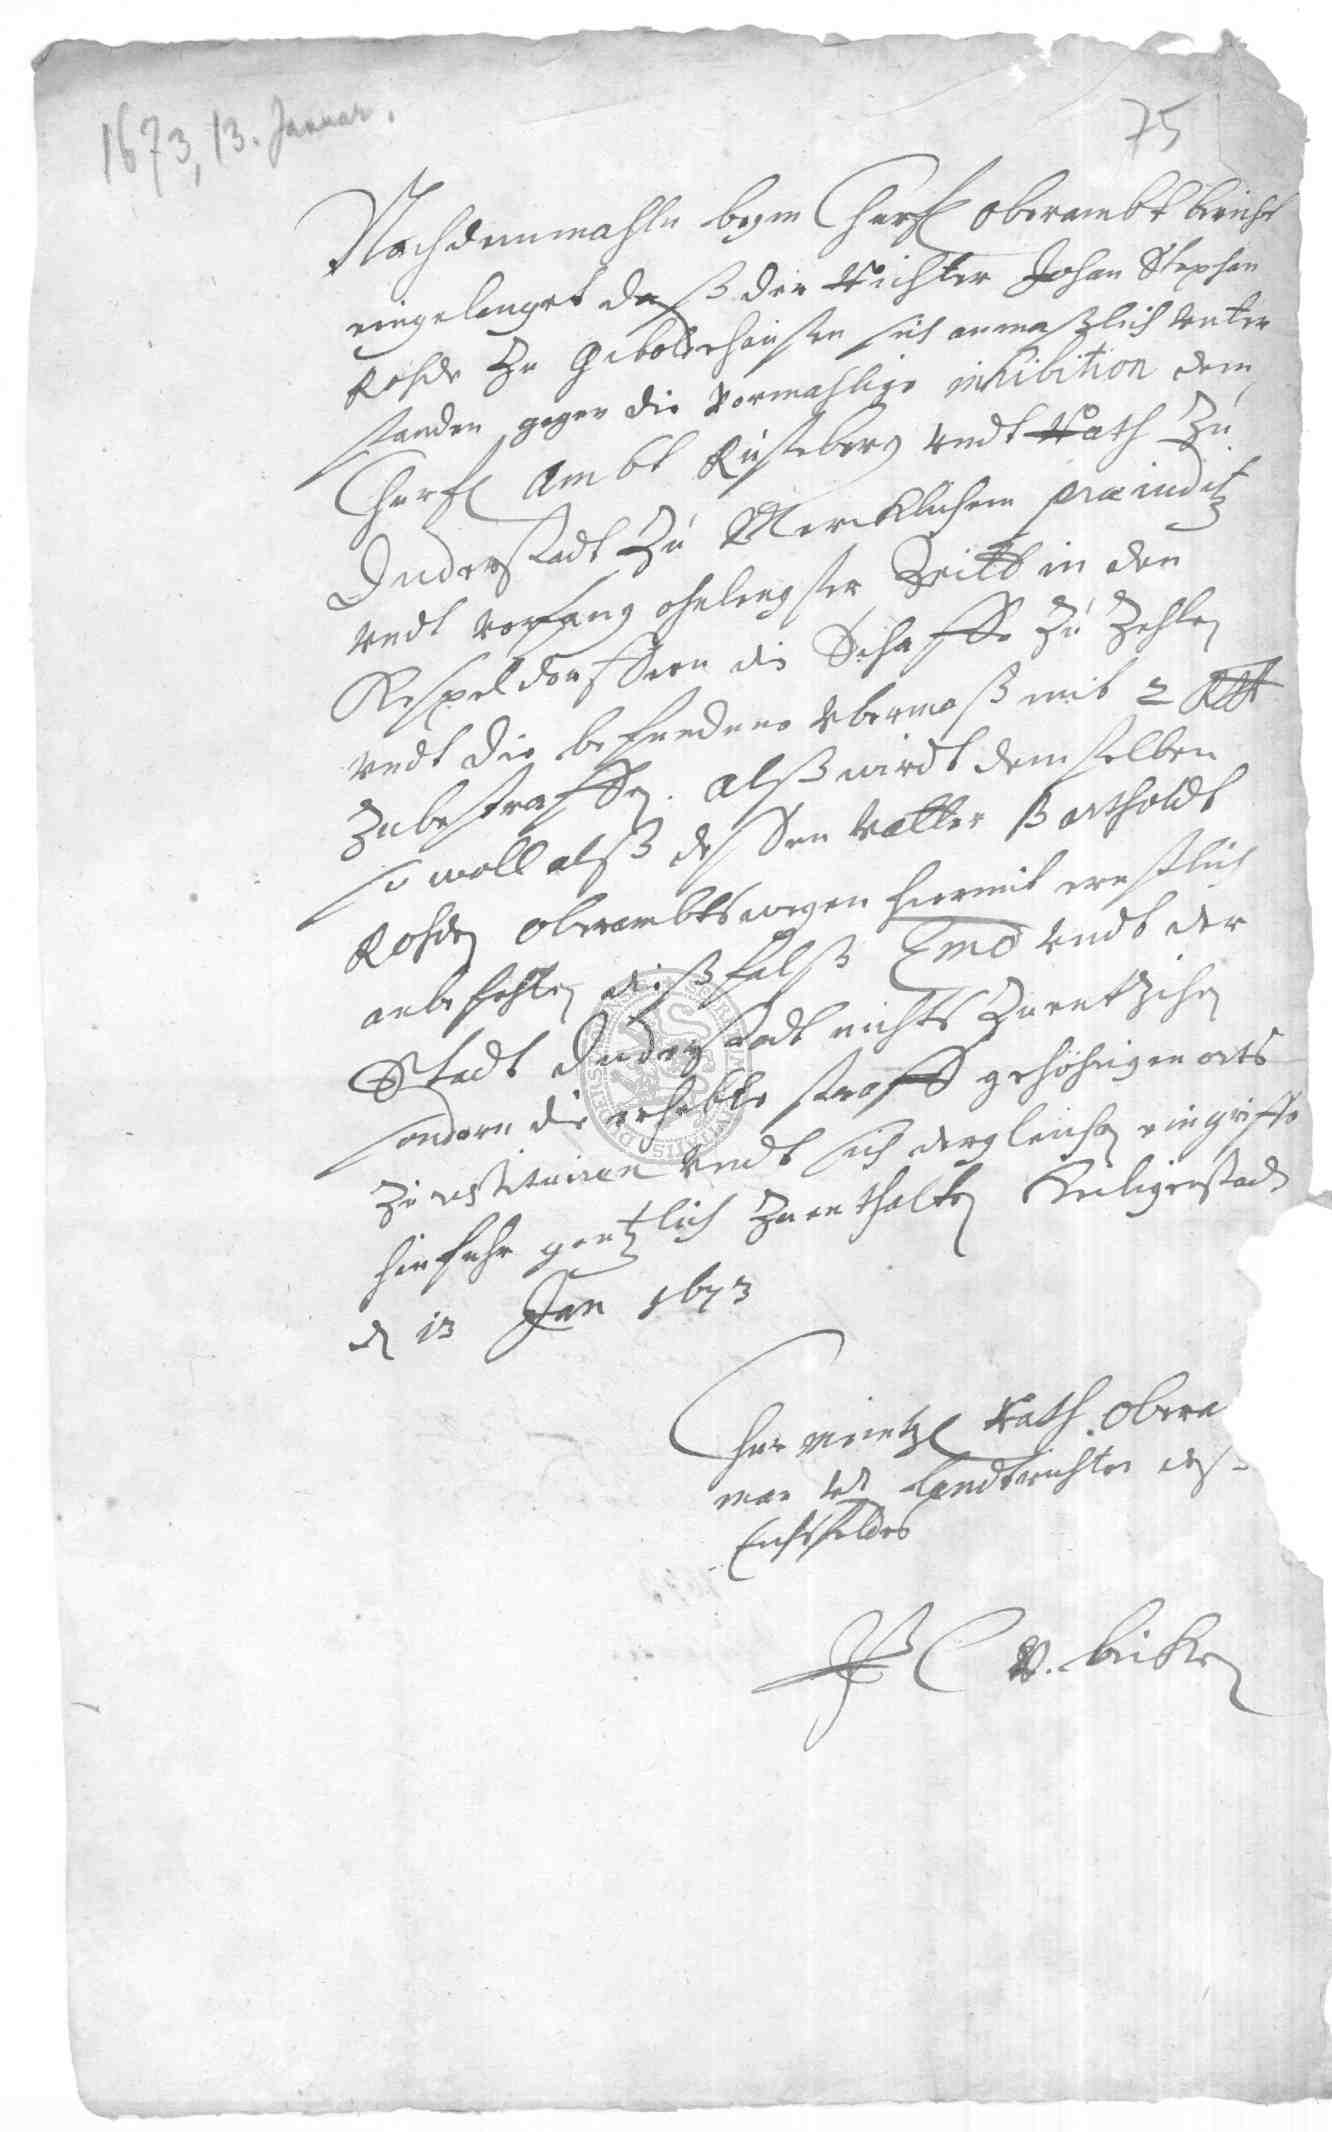 1673, 13. Januar.
75
Nachdemmahln beym Churfl Oberambt bericht
eingelanget daß der Richter Johan Stephan
Rohde Zu Giboldehausen sich anmaßlich unter
standen gegen die vormahlige inhibition dem
Churfl Ambt Rusteberg undt Rath Zu
Duderstadt Zu Mercklichem præiuditz
undt vorfang ohnlengster Zeitt in den
Kespeldörffern die Schaffe Zu Zehlen
undt die befundene ubermaß mit 2 Rthlr
Zubestraffen. Alß wirdt demselben
so woll alß dessen Vatter Bartholdt
Rohden Oberambtswegen hiermit ernstlich
anbefehlen dißfalß Emo undt der
Stadt Duderstadt nichts Zuentziehen
sondern die erhabte straff gehörigen orts
Zu restituiren undt sich dergleichen eingriffe
hinfuhr gentzlich Zuenthalten Heiligenstadt
d 13 Jan 1673
Churmeintzl Rath Obera
man undt Landtrichter des
Eichsfeldes
C V. bicken